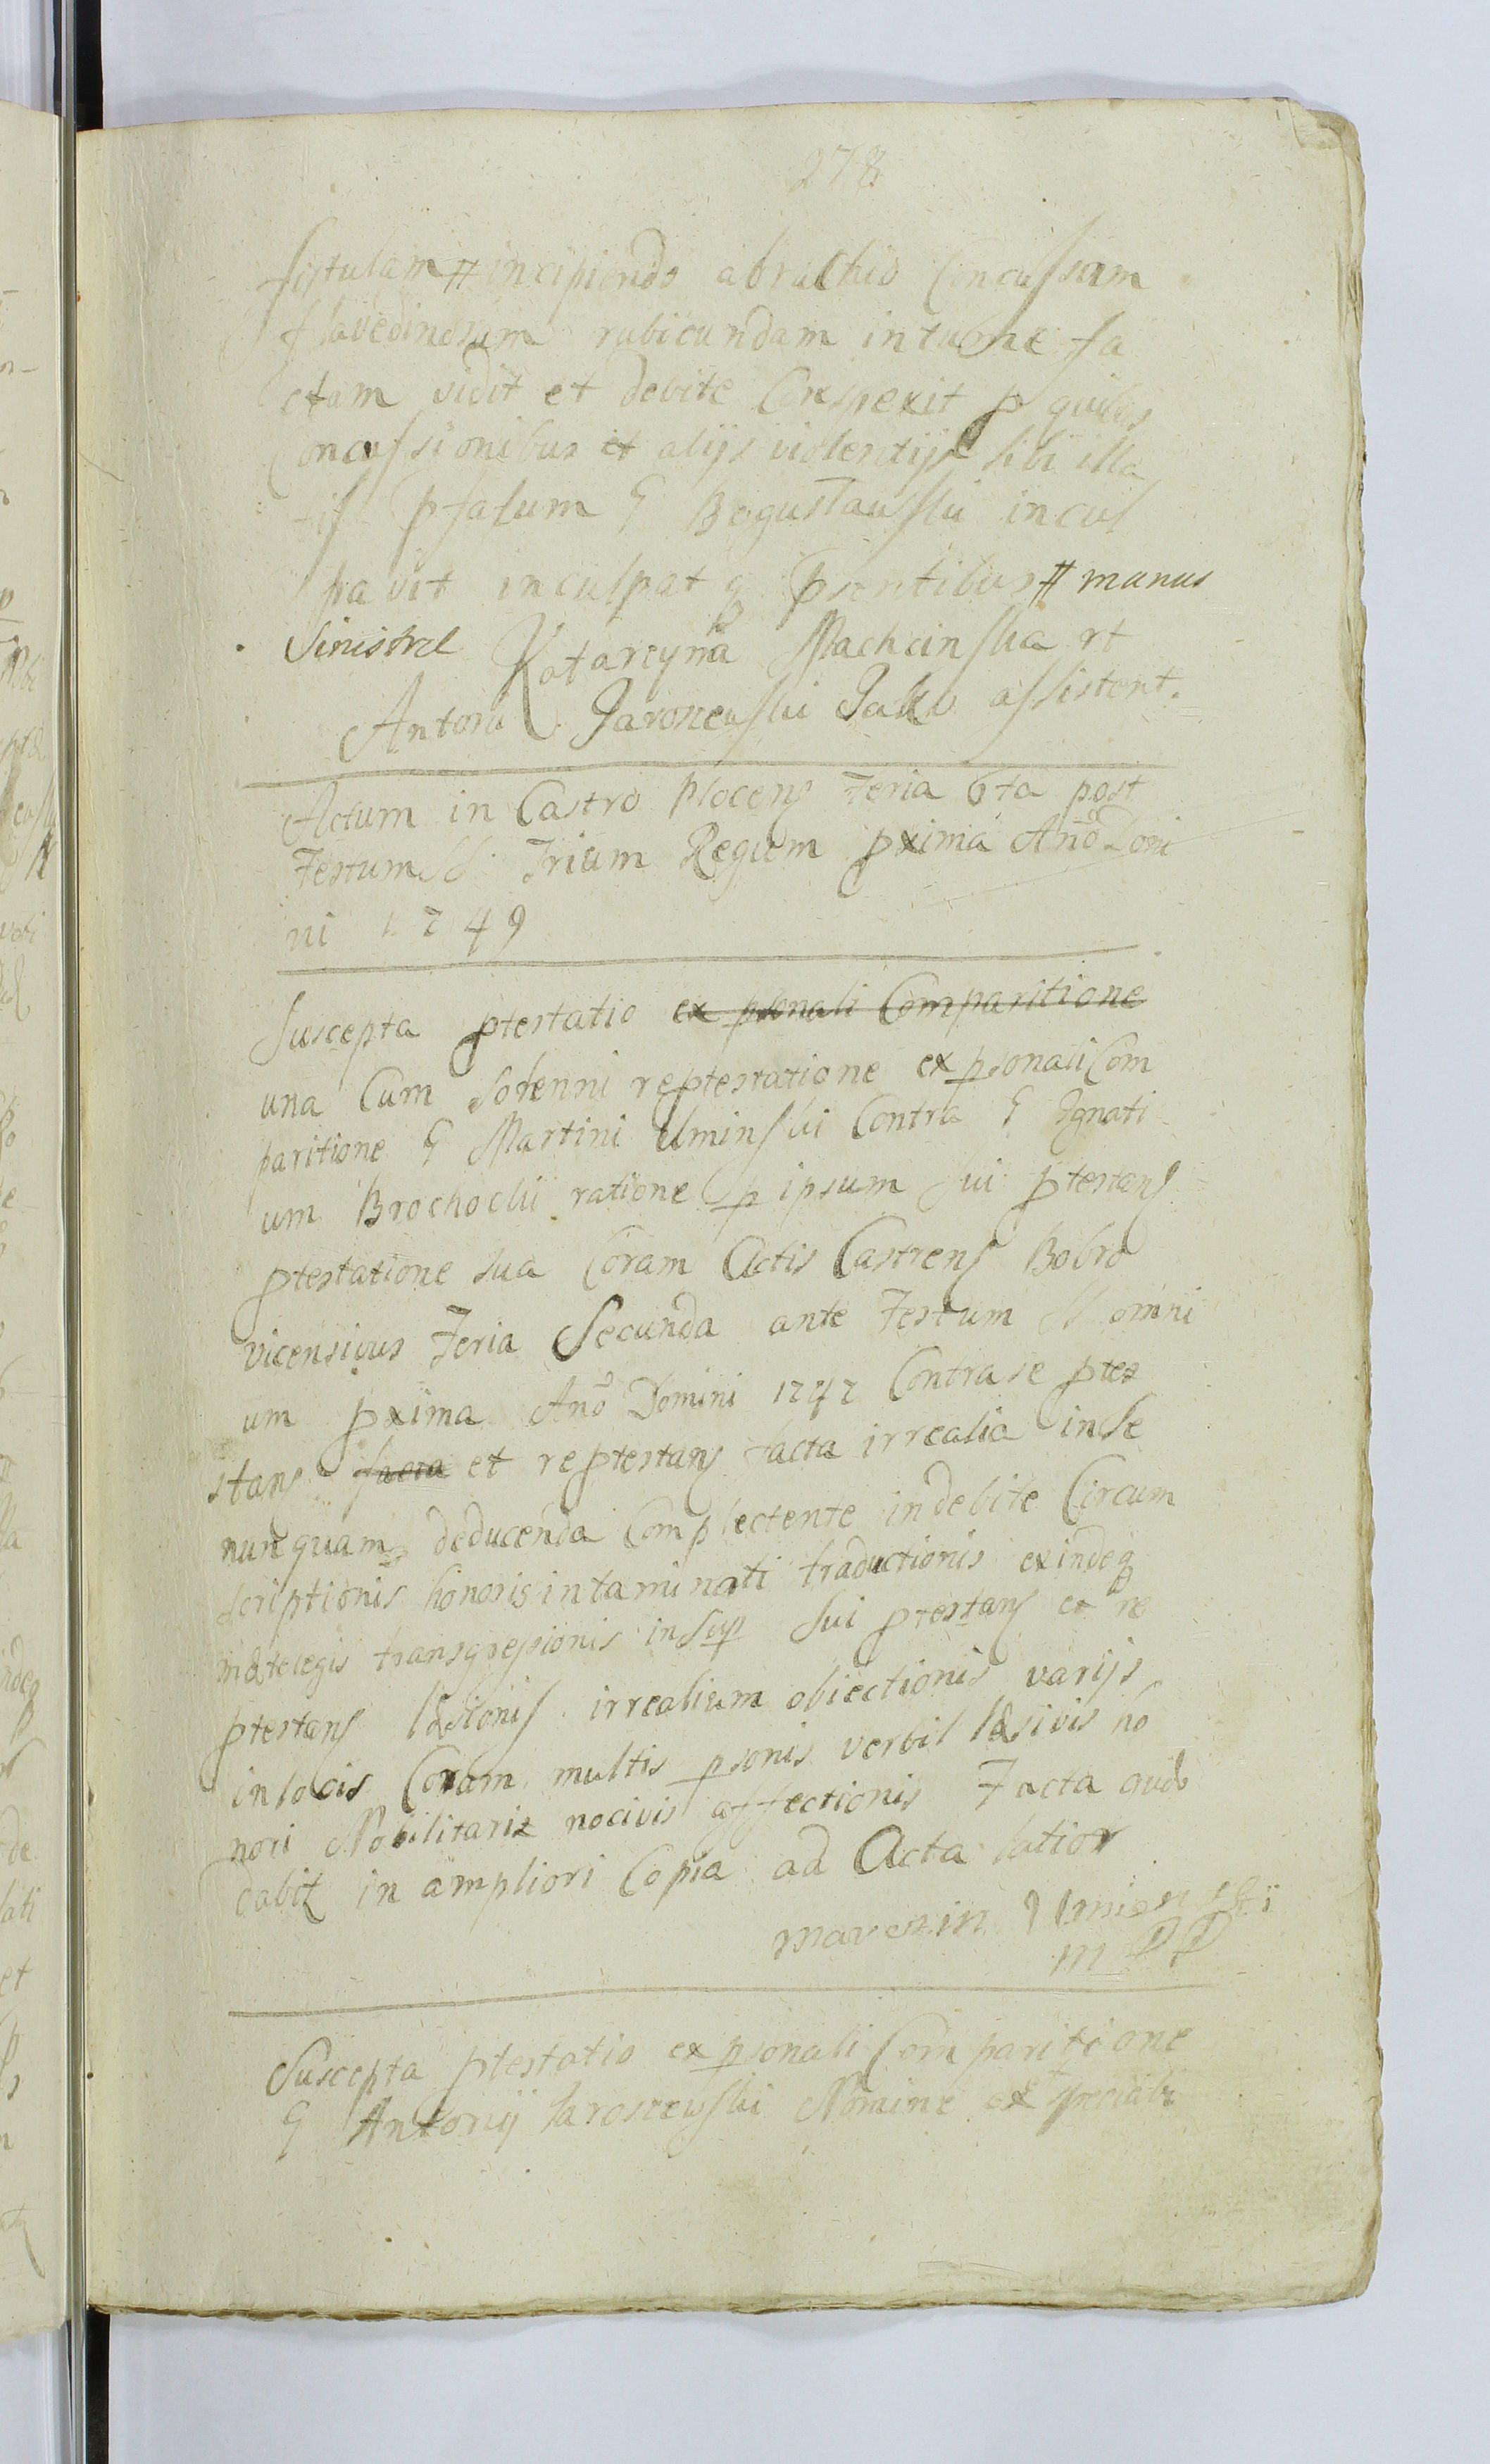 278
fistulam # incipiendo a brachio Concussam
flavedinosam rubicundam intume fa
ctam vidit et debite Conspexit p quibus
Concussionibus et alijs violentijs sibi illa
tis pfatum G Bogusławski incul
pavit inculpat q psentibus # manus
Sinistræ Katarzyna Machcinska et
Antoni Jaroszewski Jako assistent.
Actum in Castro Plocens Feria 6ta post
Festum S. Trium Regum pxima Anno Domi
ni 1749
Suscepta ptestatio ex psonali Comparitione
una Cum Solenni reptestatione ex psonali Com
paritione G Martini Uminski Contra G Ignati
um Brochocki ratione p ipsum sui ptestans
ptestatione sua Coram Actis Castrens Bobro
vicensibus Feria Secunda ante Festum S omni
um pxima Anno Domini 1747 Contra se ptes
stans facta et reptestans facta irrealia in se
nunquam deducenda Complectente indebite Circum
scriptionis honoris intaminati traductionis exindeq
mdte legis transgressionis insup sui ptestans et re
ptestans læsionis irrealium obiectionis varijs
in locis Coram multis psonis verbis læsivis ho
nori Nobilitaris nocivis affectionis Facta
dabit in ampliori Copia ad Acta latior
Marczin Uminski
m pp
Suscepta ptestatio ex psonali Comparitione
G Antonij Jaroszewski Nomine et speciali